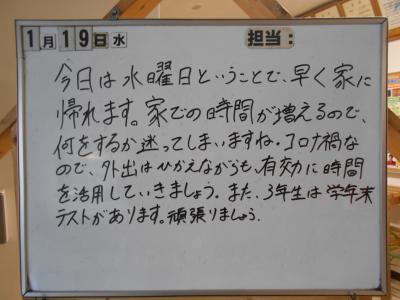 1月19日水 担当:
今日は水曜日ということで、早く家に
帰れます。家での時間が増えるので、
何をするか迷ってしまいますね。コロナ禍な
ので、外出はひかえながらも、有効に時間
を活用していきましょう。また、3年生は学年末
テストがあります。頑張りましょう。